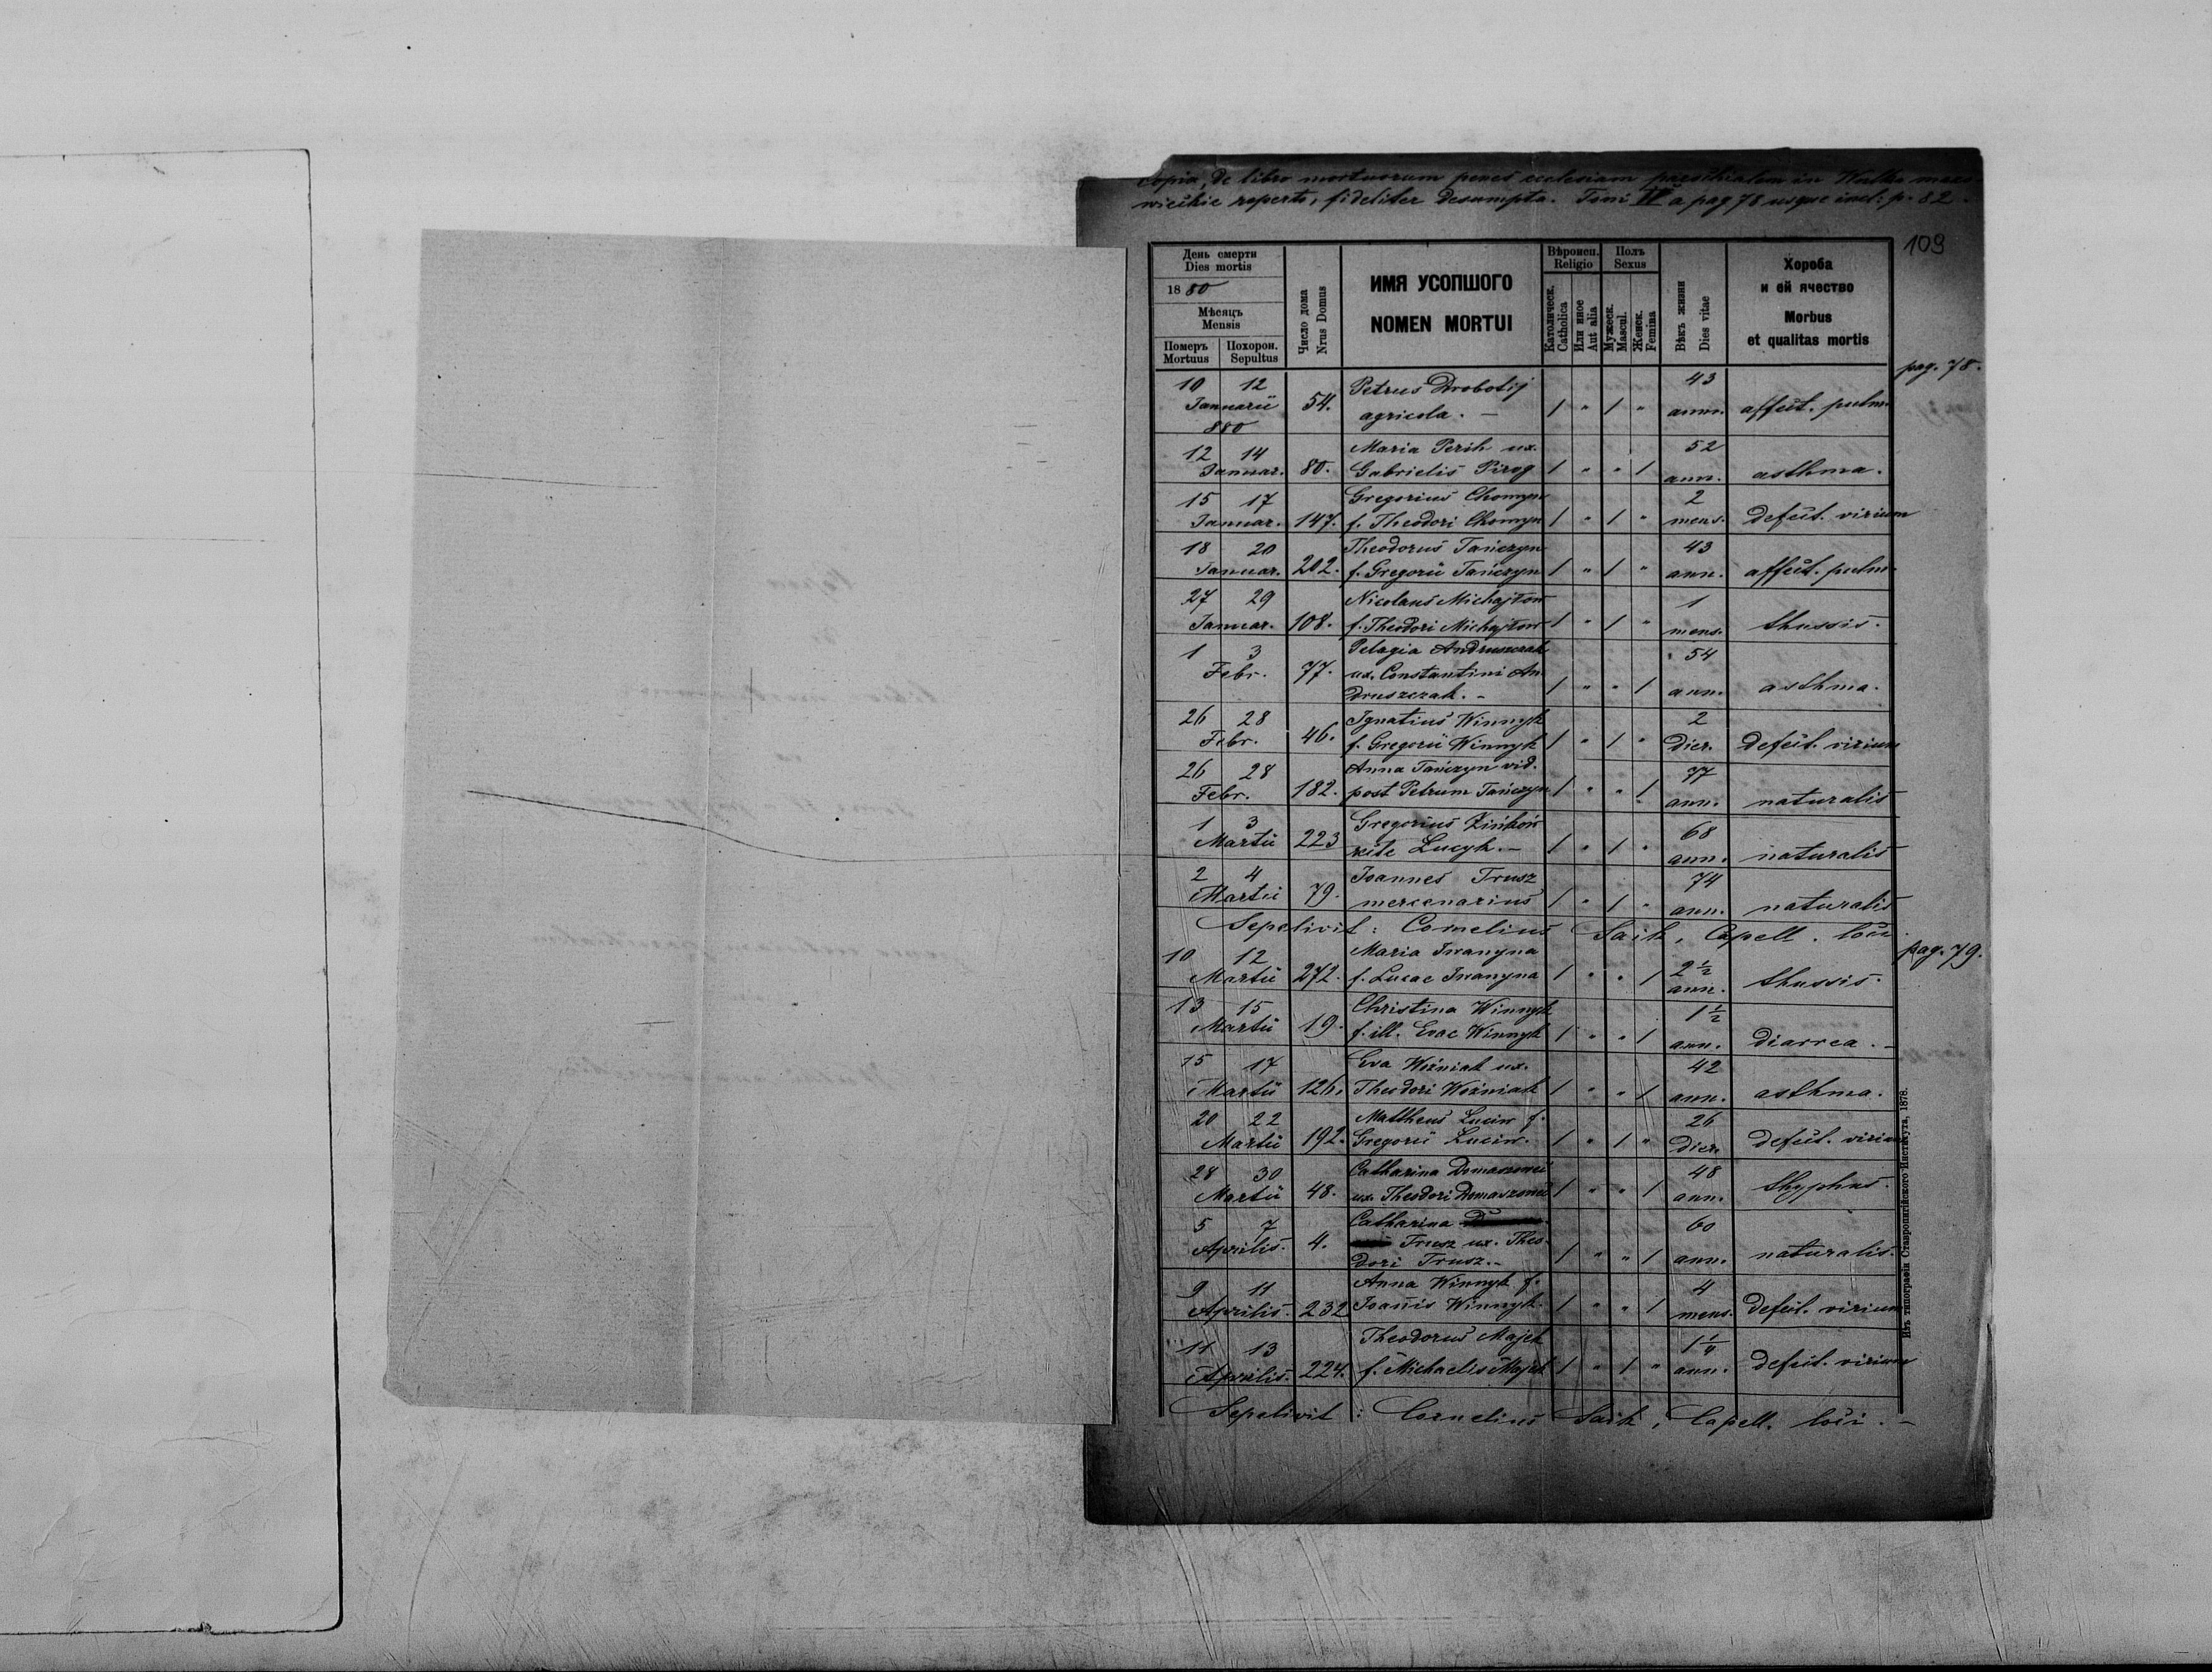 Copia, de libro mortuorum penes ecclesiam parochialem in
wieckie reperto, fideliter desumpta. Tomi IV a pag 78 usque incl: p. 82.
109
День смерти
Dies mortis
1880
Мѣсяцъ
Mensis
Померъ Похорон.
Mortuus Sepultus
Число дома
Nrus Domus
ИМЯ УСОПШОГО
NOMEN MORTUI
Вѣроисп.
Religio
Католическ.
Catholica
Или иное
Aut alia
Полъ
Sexus
Мужеск.
Mascul.
Женск.
Femina
Вѣкъ жизни
Dies vitae
Хороба
и ей ячество
Morbus
et qualitas mortis
pag. 78.
10 12 Petrus Drobotij 43
Januarii 54. agricola. – 1 " 1 " ann. affect. pulm.
880
12 14 Maria Perih ux. 52
Januar. 80. Gabrielis Pirog 1 " " 1 ann. asthma.
15 17 Gregorius Chomyn 2
Januar. 147. f. Theodori Chomyn 1 " 1 " mens. defect. virium
18 20 Theodorus Tańczyn 43
Januar. 202. f. Gregorii Tańczyn 1 " 1 " ann. affect. pulm.
27 29 Nicolaus Michajłow 1
Januar. 108. f. Theodori Michajłow 1 " 1 " mens. thussis.
1 3 Pelagia Andruszczak 54
Febr. 77. ux. Constantini An-
druszczak. – 1 " " 1 ann. asthma.
26 28 Ignatius Winnyk 2
Febr. 46. f. Gregorii Winnyk 1 " 1 " dier. defect. virium
26 28 Anna Tańczyn vid. 77
Febr. 182. post Petrum Tańczyn 1 " " 1 ann. naturalis
1 3 Gregorius 68
Martii 223 Lucyk. – 1 " 1 " ann. naturalis
2 4 Joannes Trusz 74
Martii 79. mercenarius 1 " 1 " ann. naturalis
Sepelivit: Cornelius Saik, Capell. loci.
pag. 79.
10 12 Maria Iwanyna 2½
Martii 272. f. Lucae Iwanyna 1 " " 1 ann. thussis.
13 15 Christina Winnyk 1½
Martii 19. f. ill. Evae Winnyk 1 " " 1 ann. diarrea. –
15 17 Eva Woźniak ux. 42
Martii 126. Theodori Woźniak 1 " " 1 ann. asthma.
20 22 Mattheus Luciw f. 26
Martii 192. Gregorii Luciw. 1 " 1 " dier. defect. virium
28 30 Catharina 48
Martii 48. ux. Theodori 1 " " 1 ann. thyphus.
5 7 Catharina 60
Aprilis. 4. Trusz ux. Theo-
dori Trusz. – 1 " " 1 ann. naturalis.
9 11 Anna Winnyk f. 4
Aprilis. 232 Joannis Winnyk. 1 " " 1 mens. defect. virium
11 13 Theodorus Majek 1¼
Aprilis. 224. f. Michaelis Majek 1 " 1 " ann. defect. virium
Sepelivit: Cornelius Saik, Capell. loci. –
Изъ типографіи Ставропигійского Института, 1878.